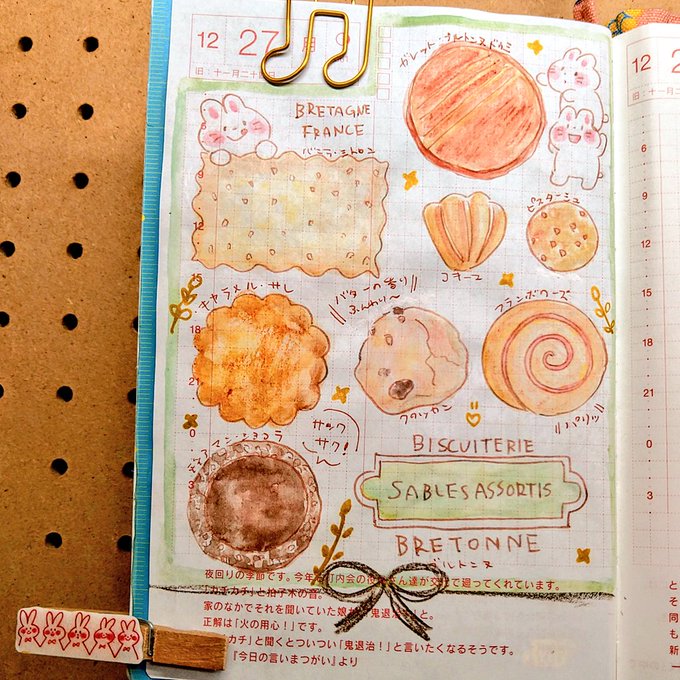 12 27 月
旧:十一月二十
BRETAGNE
FRANCE
バニラ・シトロン
ガレット・ブルトンヌドゥミ
コキーユ
ピスターシュ
キャラメル・サレ
バターの香り
ふんわり〜
フランボワーズ
クラッカン
パリッ
サック
サク!
ディアマン・ショコラ
BISCUITERIE
SABLES ASSORTIS
BRETONNE
ブルトンヌ
夜回りの季節です。今年も町内会の役員さん達が交代で廻ってくれています。
「カチカチ」と拍子木の音。
家のなかでそれを聞いていた娘が「鬼退治」と。
正解は「火の用心!」です。
カチ」と聞くとついつい「鬼退治!」と言いたくなるそうです。
『今日の言いまつがい』より
12 2